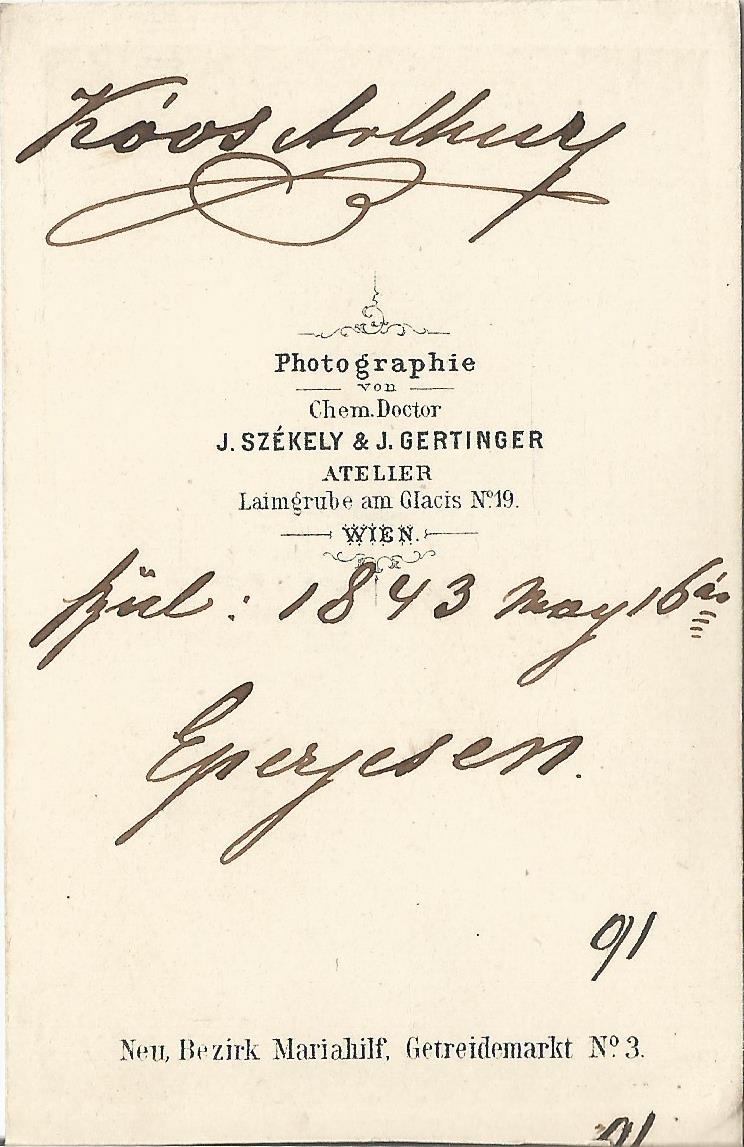 Kóos Arthur
Photographie
von
Chem. Doctor
J. SZÉKELY & J. GERTINGER
ATELIER
Laimgrube am Glacis Nº 19.
WIEN.
szül: 1843 May 16án
Eperjesen.
91
Neu, Bezirk Mariahilf, Getreidemarkt Nº 3.
91